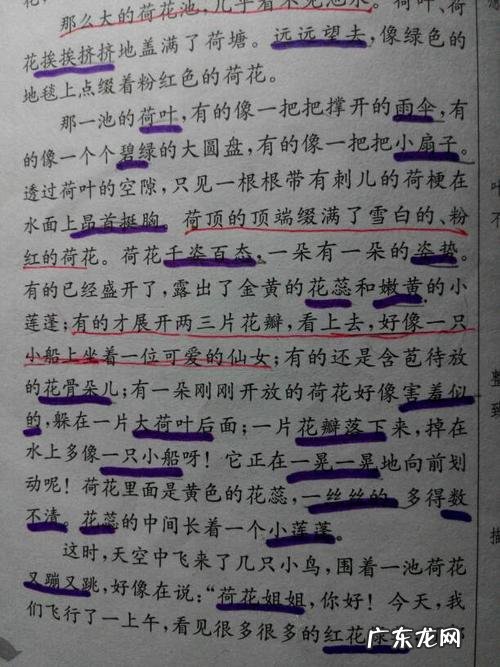 那么大的荷花池，几乎看不见池水。荷叶、荷
花挨挨挤挤地盖满了荷塘。远远望去，像绿色的
地毯上点缀着粉红色的荷花。
那一池的荷叶，有的像一把把撑开的雨伞，有
的像一个个碧绿的大圆盘，有的像一把把小扇子。
透过荷叶的空隙，只见一根根带有刺儿的荷梗在
水面上昂首挺胸。荷顶的顶端缀满了雪白的、粉
红的荷花。荷花千姿百态，一朵有一朵的姿势。
有的已经盛开了，露出了金黄的花蕊和嫩黄的小
莲蓬；有的才展开两三片花瓣，看上去，好像一只
小船上坐着一位可爱的仙女；有的还是含苞待放
的花骨朵儿；有一朵刚刚开放的荷花好像害羞似
的，躲在一片大荷叶后面；一片花瓣落下来，掉在
水上多像一只小船呀！它正在一晃一晃地向前划
动呢！荷花里面是黄色的花蕊，一丝丝的多得数
不清。花蕊的中间长着一个小莲蓬。
这时，天空中飞来了几只小鸟，围着一池荷花
又蹦又跳，好像在说：“荷花姐姐，你好！今天，我
们飞行了一上午，看见很多很多的红花
广东龙网
GDCY.NET